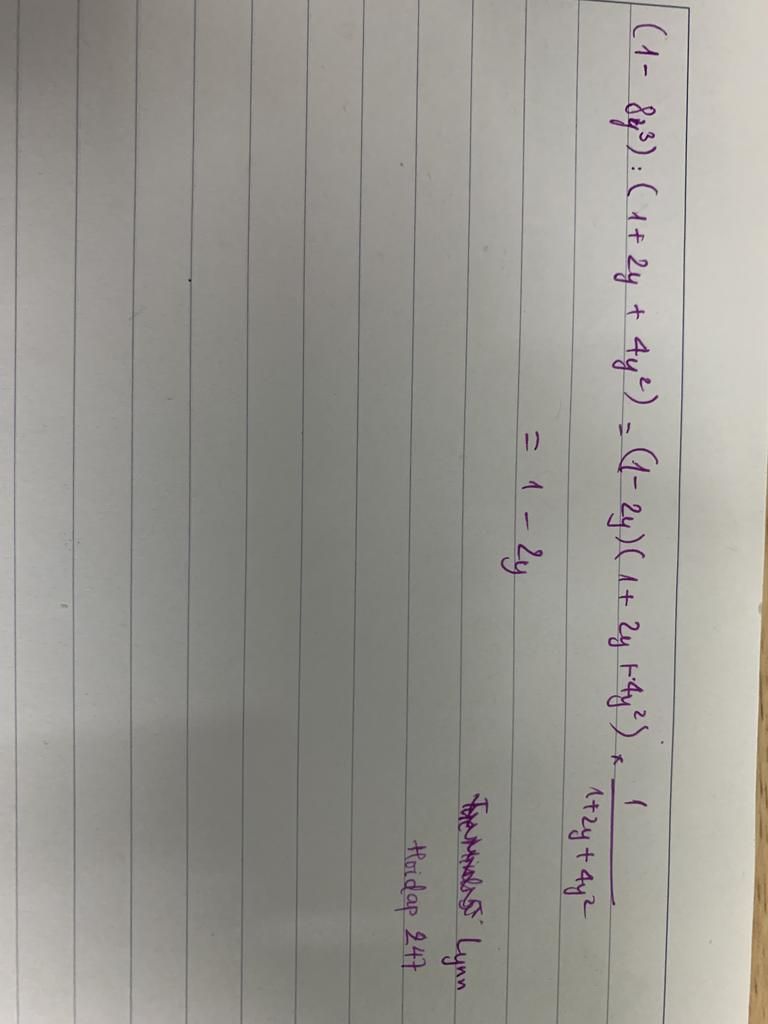 (1 - 8y³) : (1 + 2y + 4y²) = (1 - 2y)(1 + 2y + 4y²) × 1/(1+2y+4y²)
= 1 - 2y
Lynn
Hoidap 247